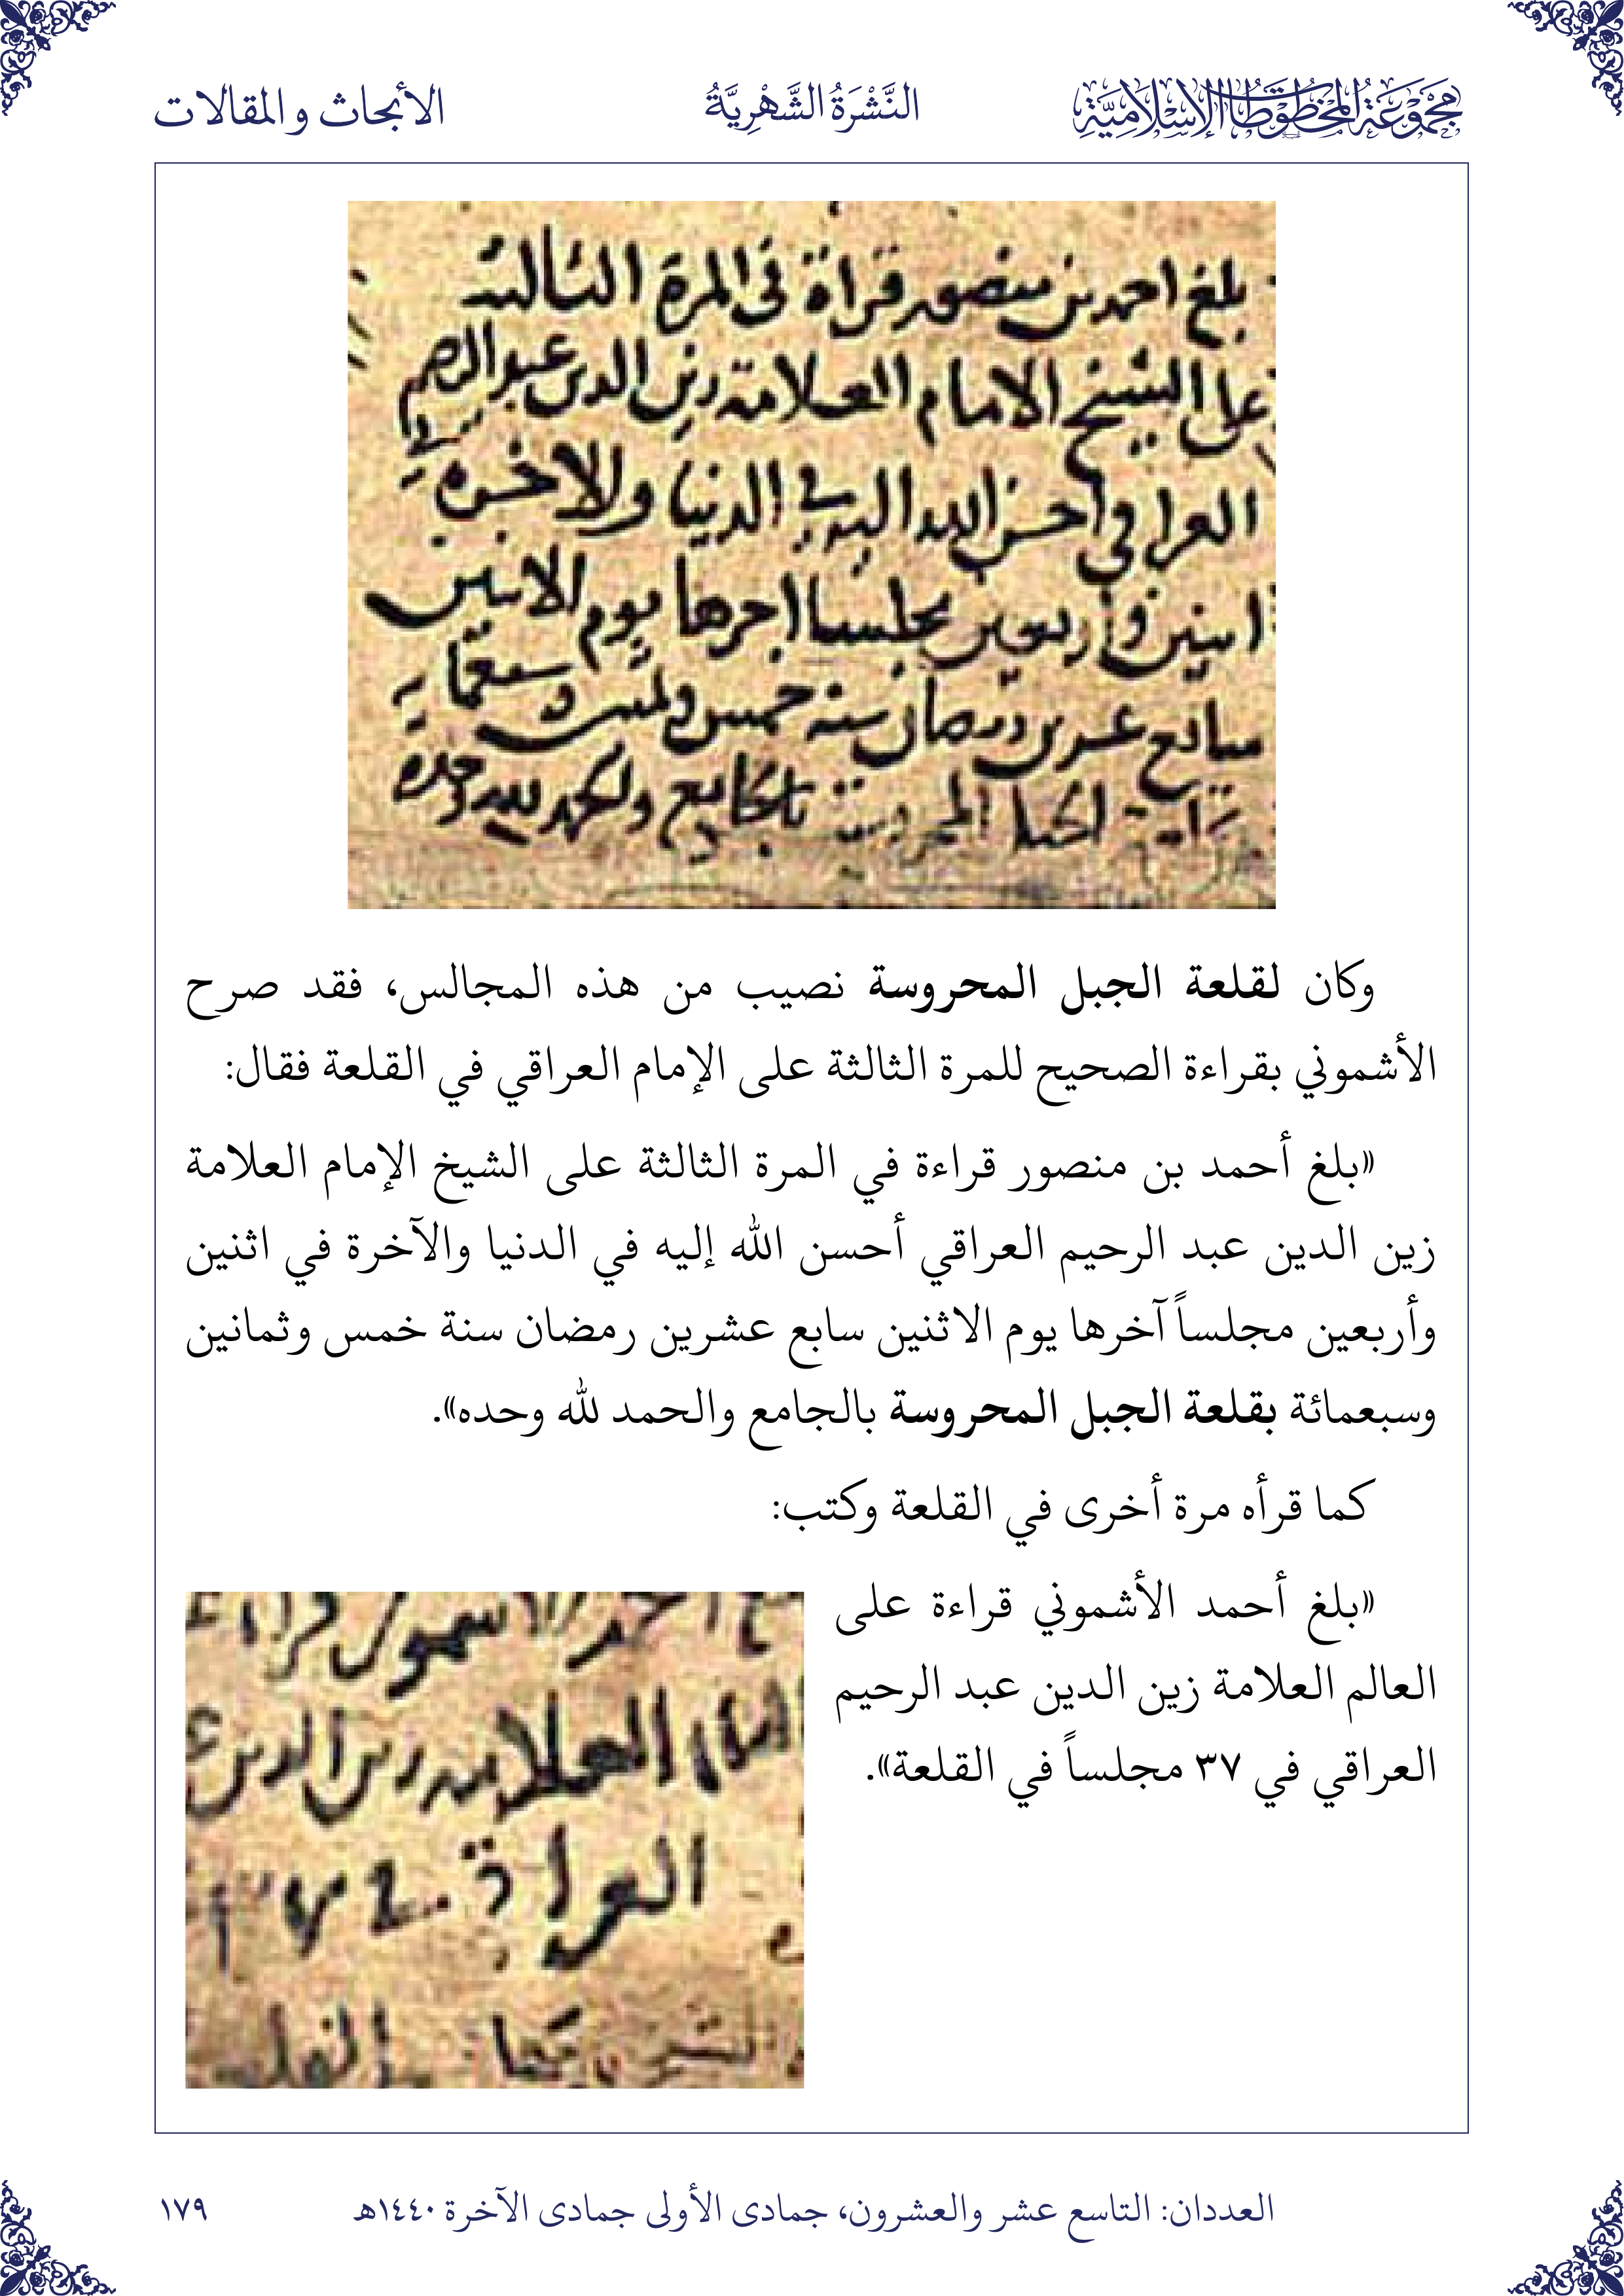 مجموعة المخطوطات الإسلامية
النَّشْرَةُ الشَّهْرِيَّةُ
الأبحاث والمقالات
بلغ احمد بن منصور قراة في المرة الثالثة
على الشيخ الامام العلامة زين الدين عبد الرحيم
العراقي احسن الله اليه في الدنيا والاخرة في
اثنين واربعين مجلسا اخرها يوم الاثنين
سابع عشرين رمضان سنة خمس وثمنين وسبعماية
بقلعة الجبل المحروسة بالجامع والحمد لله وحده
وكان لقلعة الجبل المحروسة نصيب من هذه المجالس، فقد صرح
الأشموني بقراءة الصحيح للمرة الثالثة على الإمام العراقي في القلعة فقال:
«بلغ أحمد بن منصور قراءة في المرة الثالثة على الشيخ الإمام العلامة
زين الدين عبد الرحيم العراقي أحسن الله إليه في الدنيا والآخرة في اثنين
وأربعين مجلساً آخرها يوم الاثنين سابع عشرين رمضان سنة خمس وثمانين
وسبعمائة بقلعة الجبل المحروسة بالجامع والحمد لله وحده».
كما قرأه مرة أخرى في القلعة وكتب:
«بلغ أحمد الأشموني قراءة على
العالم العلامة زين الدين عبد الرحيم
العراقي في ٣٧ مجلساً في القلعة».
احمد الاشموني قراءة
العلامة زين الدين
العراقي في ٣٧
العددان: التاسع عشر والعشرون، جمادى الأولى جمادى الآخرة ١٤٤٠هـ
١٧٩